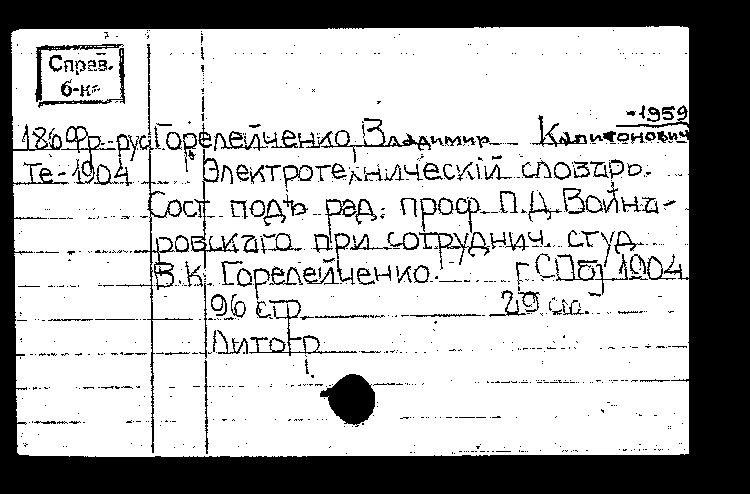 Справ.
б-ка
-1959
186 Фр.-рус Горелейченко, Владимир Капитонович
Те-1904 Электротехническій словарь.
Сост. подъ ред. проф. П.Д. Война-
ровскаго при сотруднич. студ.
В.К. Горелейченко. [СПб] 1904
96 стр. 29 см.
Литогр.